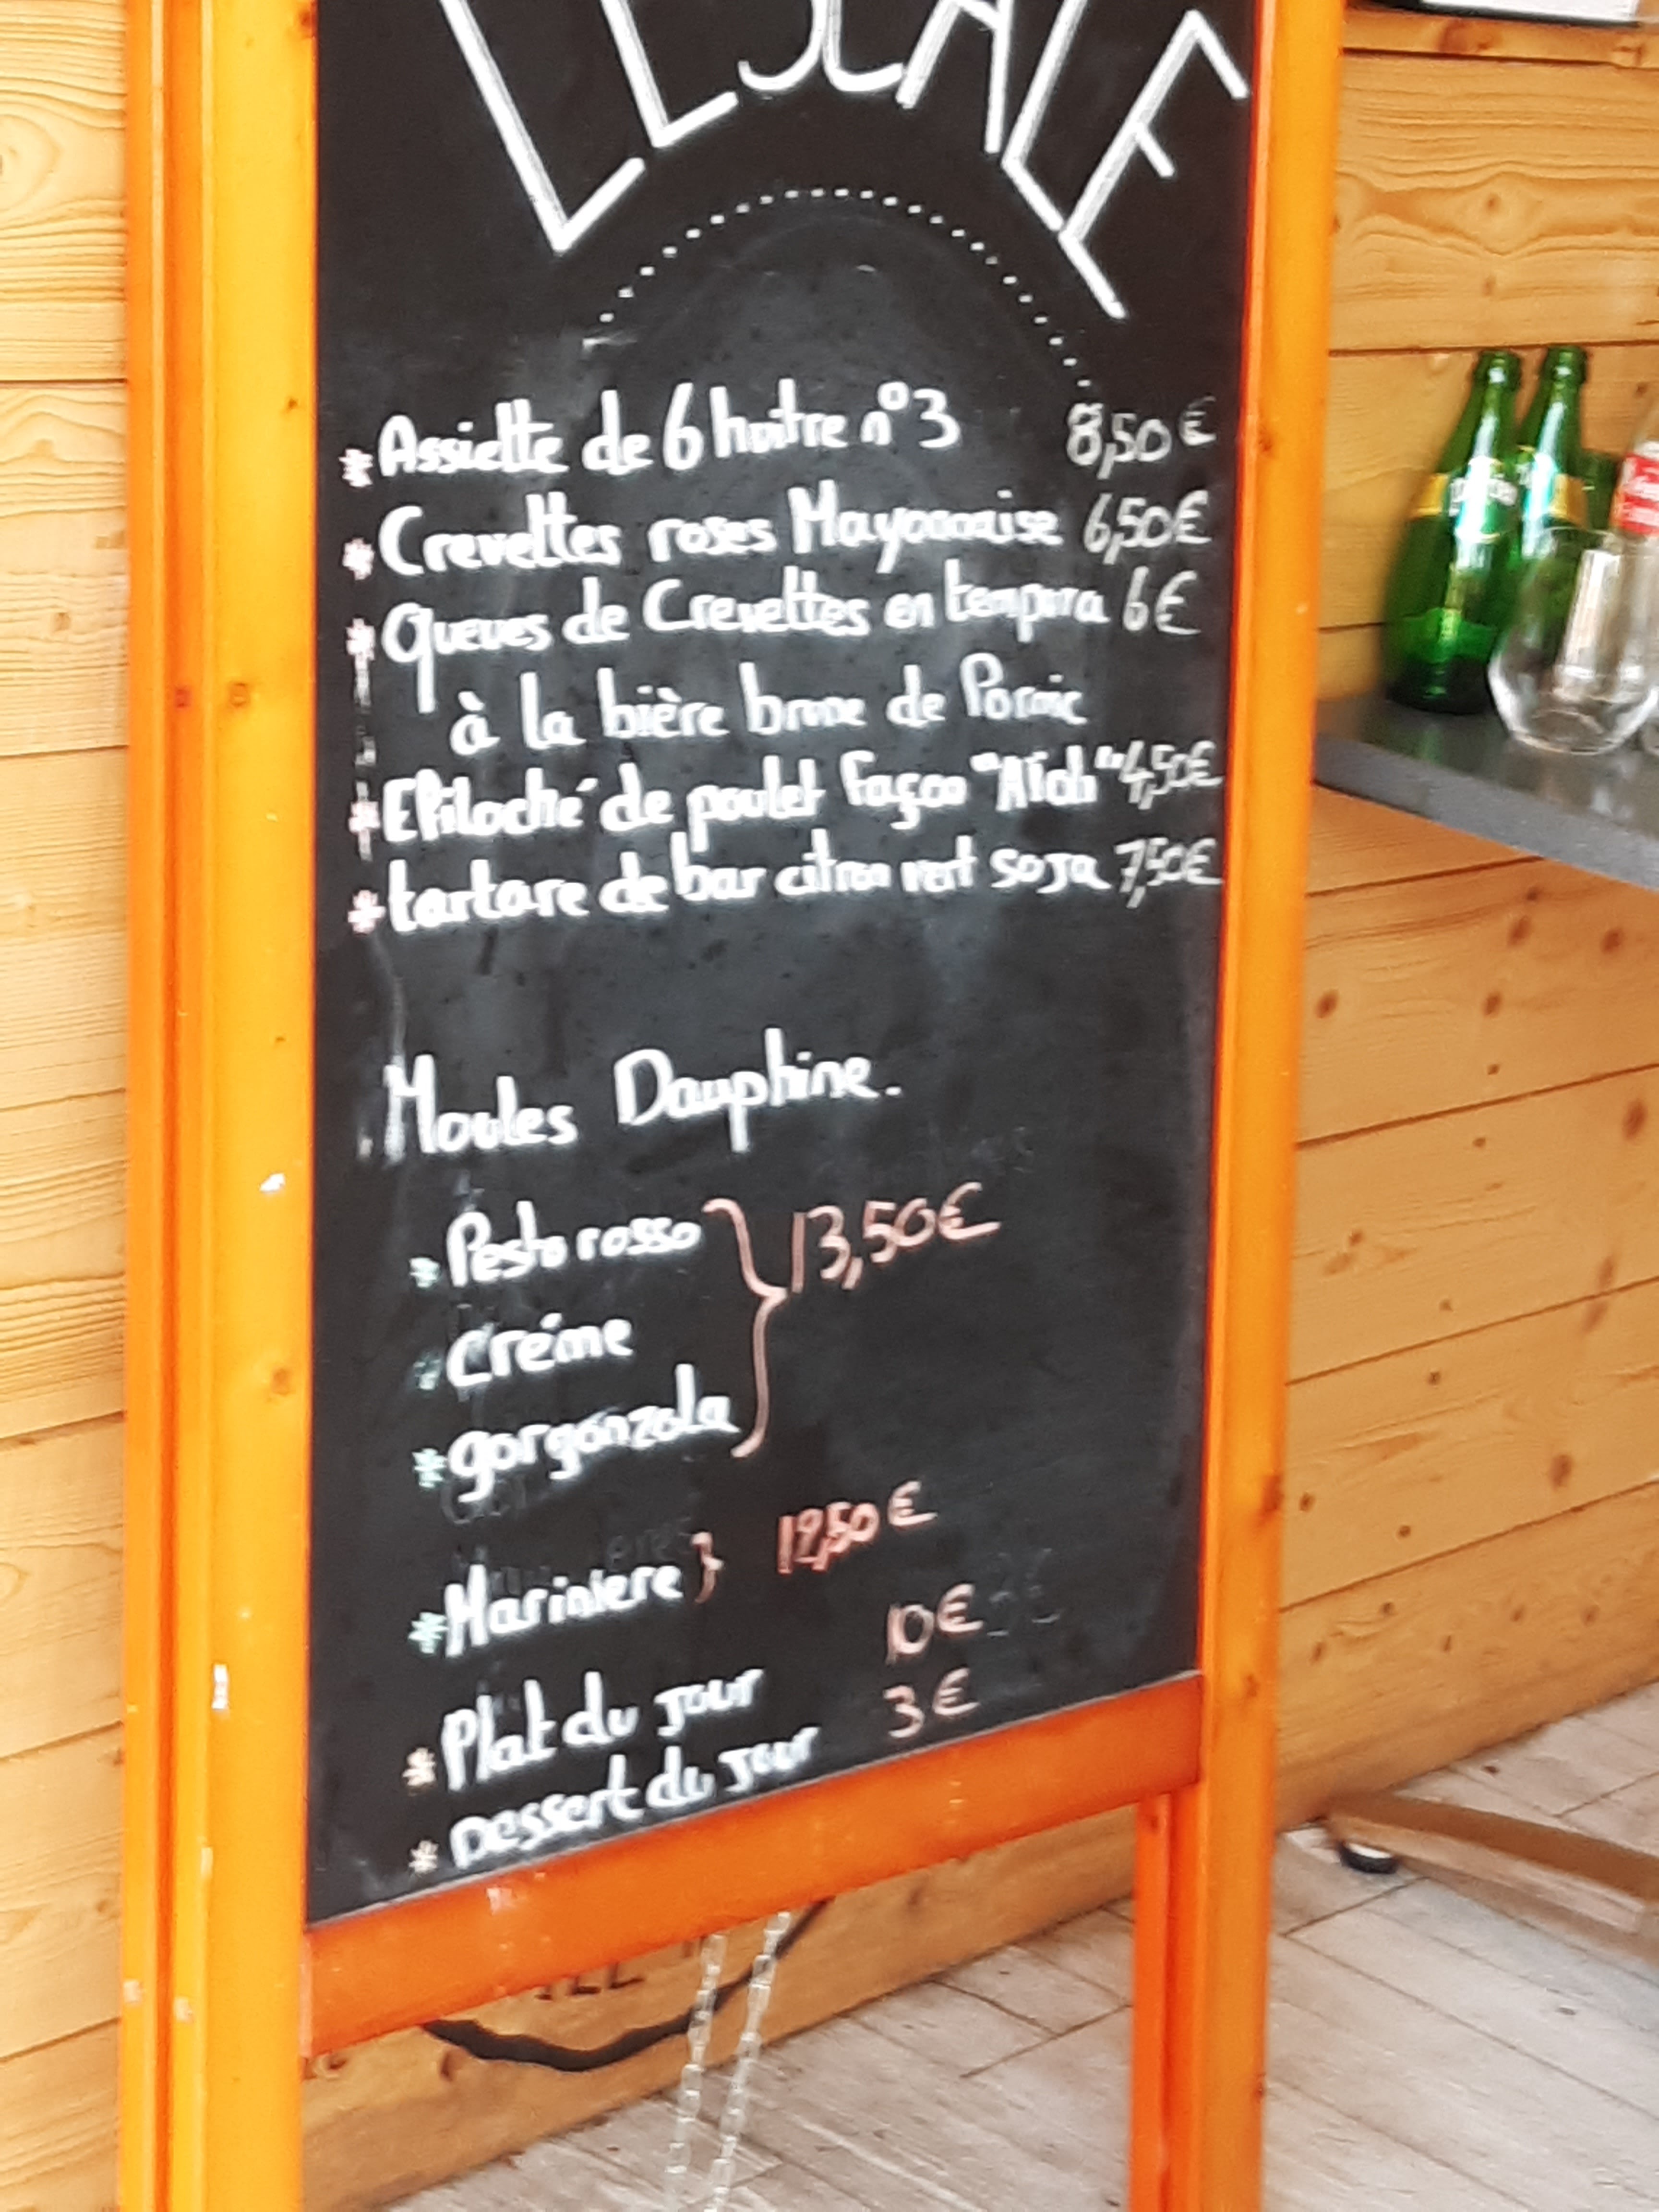 L'ESCALE
* Assiette de 6 huitre n°3 8,50€
* Crevettes roses Mayonnaise 6,50€
* Queues de Crevettes en tempura 6€
à la bière brune de Pornic
* Effiloché de poulet façon "Aïoli" 4,50€
* tartare de bar citron vert soja 7,50€
Moules Dauphine.
* Pesto rosso } 13,50€
* Créme
* gorgonzola
* Mariniere } 12,50€
* Plat du jour 10€
* Dessert du jour 3€